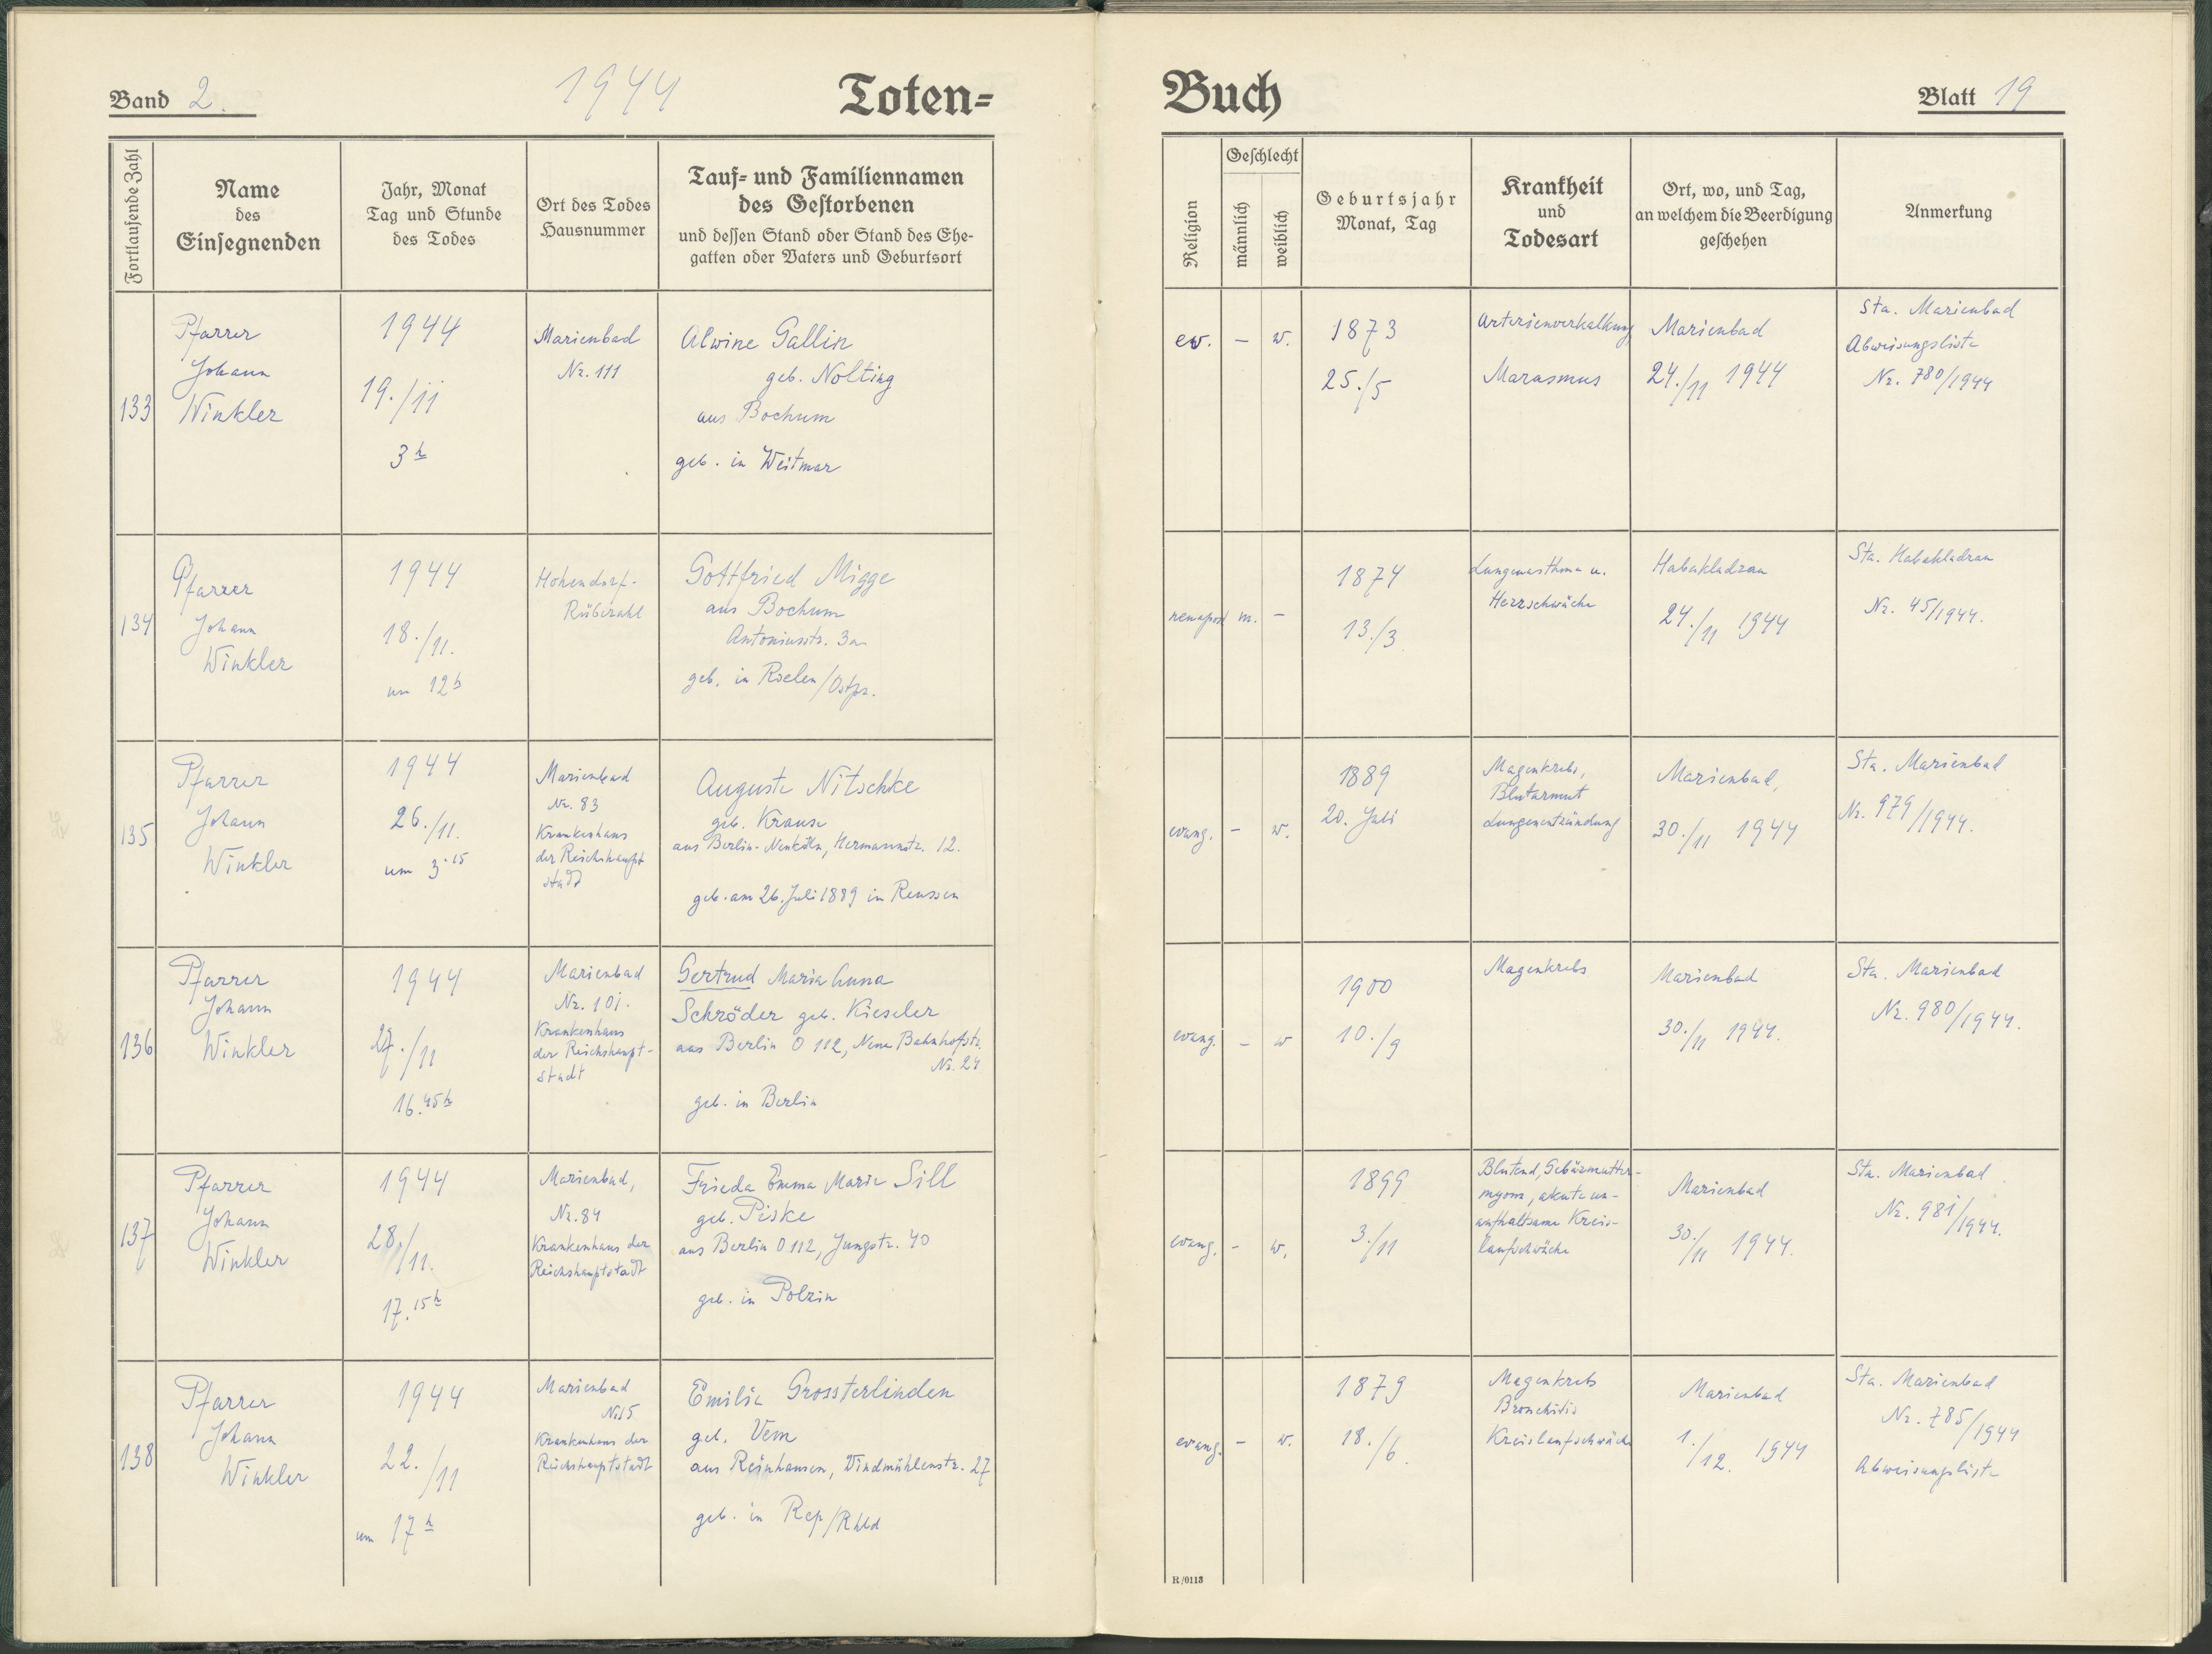 Band 2.
1944
Toten=
Buch
Blatt 19
Fortlaufende Zahl
Name
des
Einsegnenden
Jahr, Monat
Tag und Stunde
des Todes
Ort des Todes
Hausnummer
Tauf= und Familiennamen
des Gestorbenen
und dessen Stand oder Stand des Ehe-
gatten oder Vaters und Geburtsort
Religion
Geschlecht
männlich
weiblich
Geburtsjahr
Monat, Tag
Krankheit
und
Todesart
Ort, wo, und Tag,
an welchem die Beerdigung
geschehen
Anmerkung
133
Pfarrer
Johann
Winkler
1944
19./11
3h
Marienbad
Nr. 111
Alwine Gallin
geb. Nolting
aus Bochum
geb. in Weitmar
ev.
–
w.
1873
25./5
Arterienverkalkung
Marasmus
Marienbad
24./11 1944
Sta. Marienbad
Abweisungsliste
Nr. 780/1944
134
Pfarrer
Johann
Winkler
1944
18./11.
um 12h
Hohendorf-
Rübezahl
Gottfried Migge
aus Bochum
Antoniusstr. 3a
geb. in Roelen/Ostpr.
neuapost
m.
–
1874
13./3.
Lungenasthma u.
Herzschwäche
Habakladrau
24./11 1944
Sta. Habakladrau
Nr. 45/1944.
135
Pfarrer
Johann
Winkler
1944
26./11.
um 3.15
Marienbad
Nr. 83
Krankenhaus
der Reichshaupt
stadt
Auguste Nitschke
geb. Krause
aus Berlin-Neuköln, Hermannstr. 12.
geb. am 26. Juli 1889 in Reussen
evang.
–
w.
1889
20. Juli
Magenkrebs,
Blutarmut
Lungenentzündung
Marienbad,
30./11 1944
Sta. Marienbad
Nr. 979/1944.
136
Pfarrer
Johann
Winkler
1944
27./11
16.45h
Marienbad
Nr. 101.
Krankenhaus
der Reichshaupt-
stadt
Gertrud Maria Anna
Schröder geb. Kieseler
aus Berlin O 112, Neue Bahnhofstr.
Nr. 24
geb. in Berlin
evang.
–
w
1900
10./9
Magenkrebs
Marienbad
30./11 1944.
Sta. Marienbad
Nr. 980/1944.
137
Pfarrer
Johann
Winkler
1944
28./11.
17.15h
Marienbad,
Nr. 84
Krankenhaus der
Reichshauptstadt
Frieda Emma Marie Sill
geb. Piske
aus Berlin O 112, Jungstr. 40
geb. in Polzin
evang.
–
w.
1899
3./11
Blutend, Gebärmutter-
myom, akute un-
aufhaltsame Kreis-
laufschwäche
Marienbad
30./11 1944.
Sta. Marienbad
Nr. 981/1944.
138
Pfarrer
Johann
Winkler
1944
22./11
um 17h
Marienbad
Nr. 15
Krankenhaus der
Reichshauptstadt
Emilie Grossterlinden
geb. Vem
aus Reinhausen, Windmühlenstr. 27
geb. in Rep/Rhld
evang.
–
w.
1879
18./6.
Magenkrebs
Bronchitis
Kreislaufschwäche
Marienbad
1./12. 1944
Sta. Marienbad
Nr. 785/1944
Abweisungsliste
R/0113